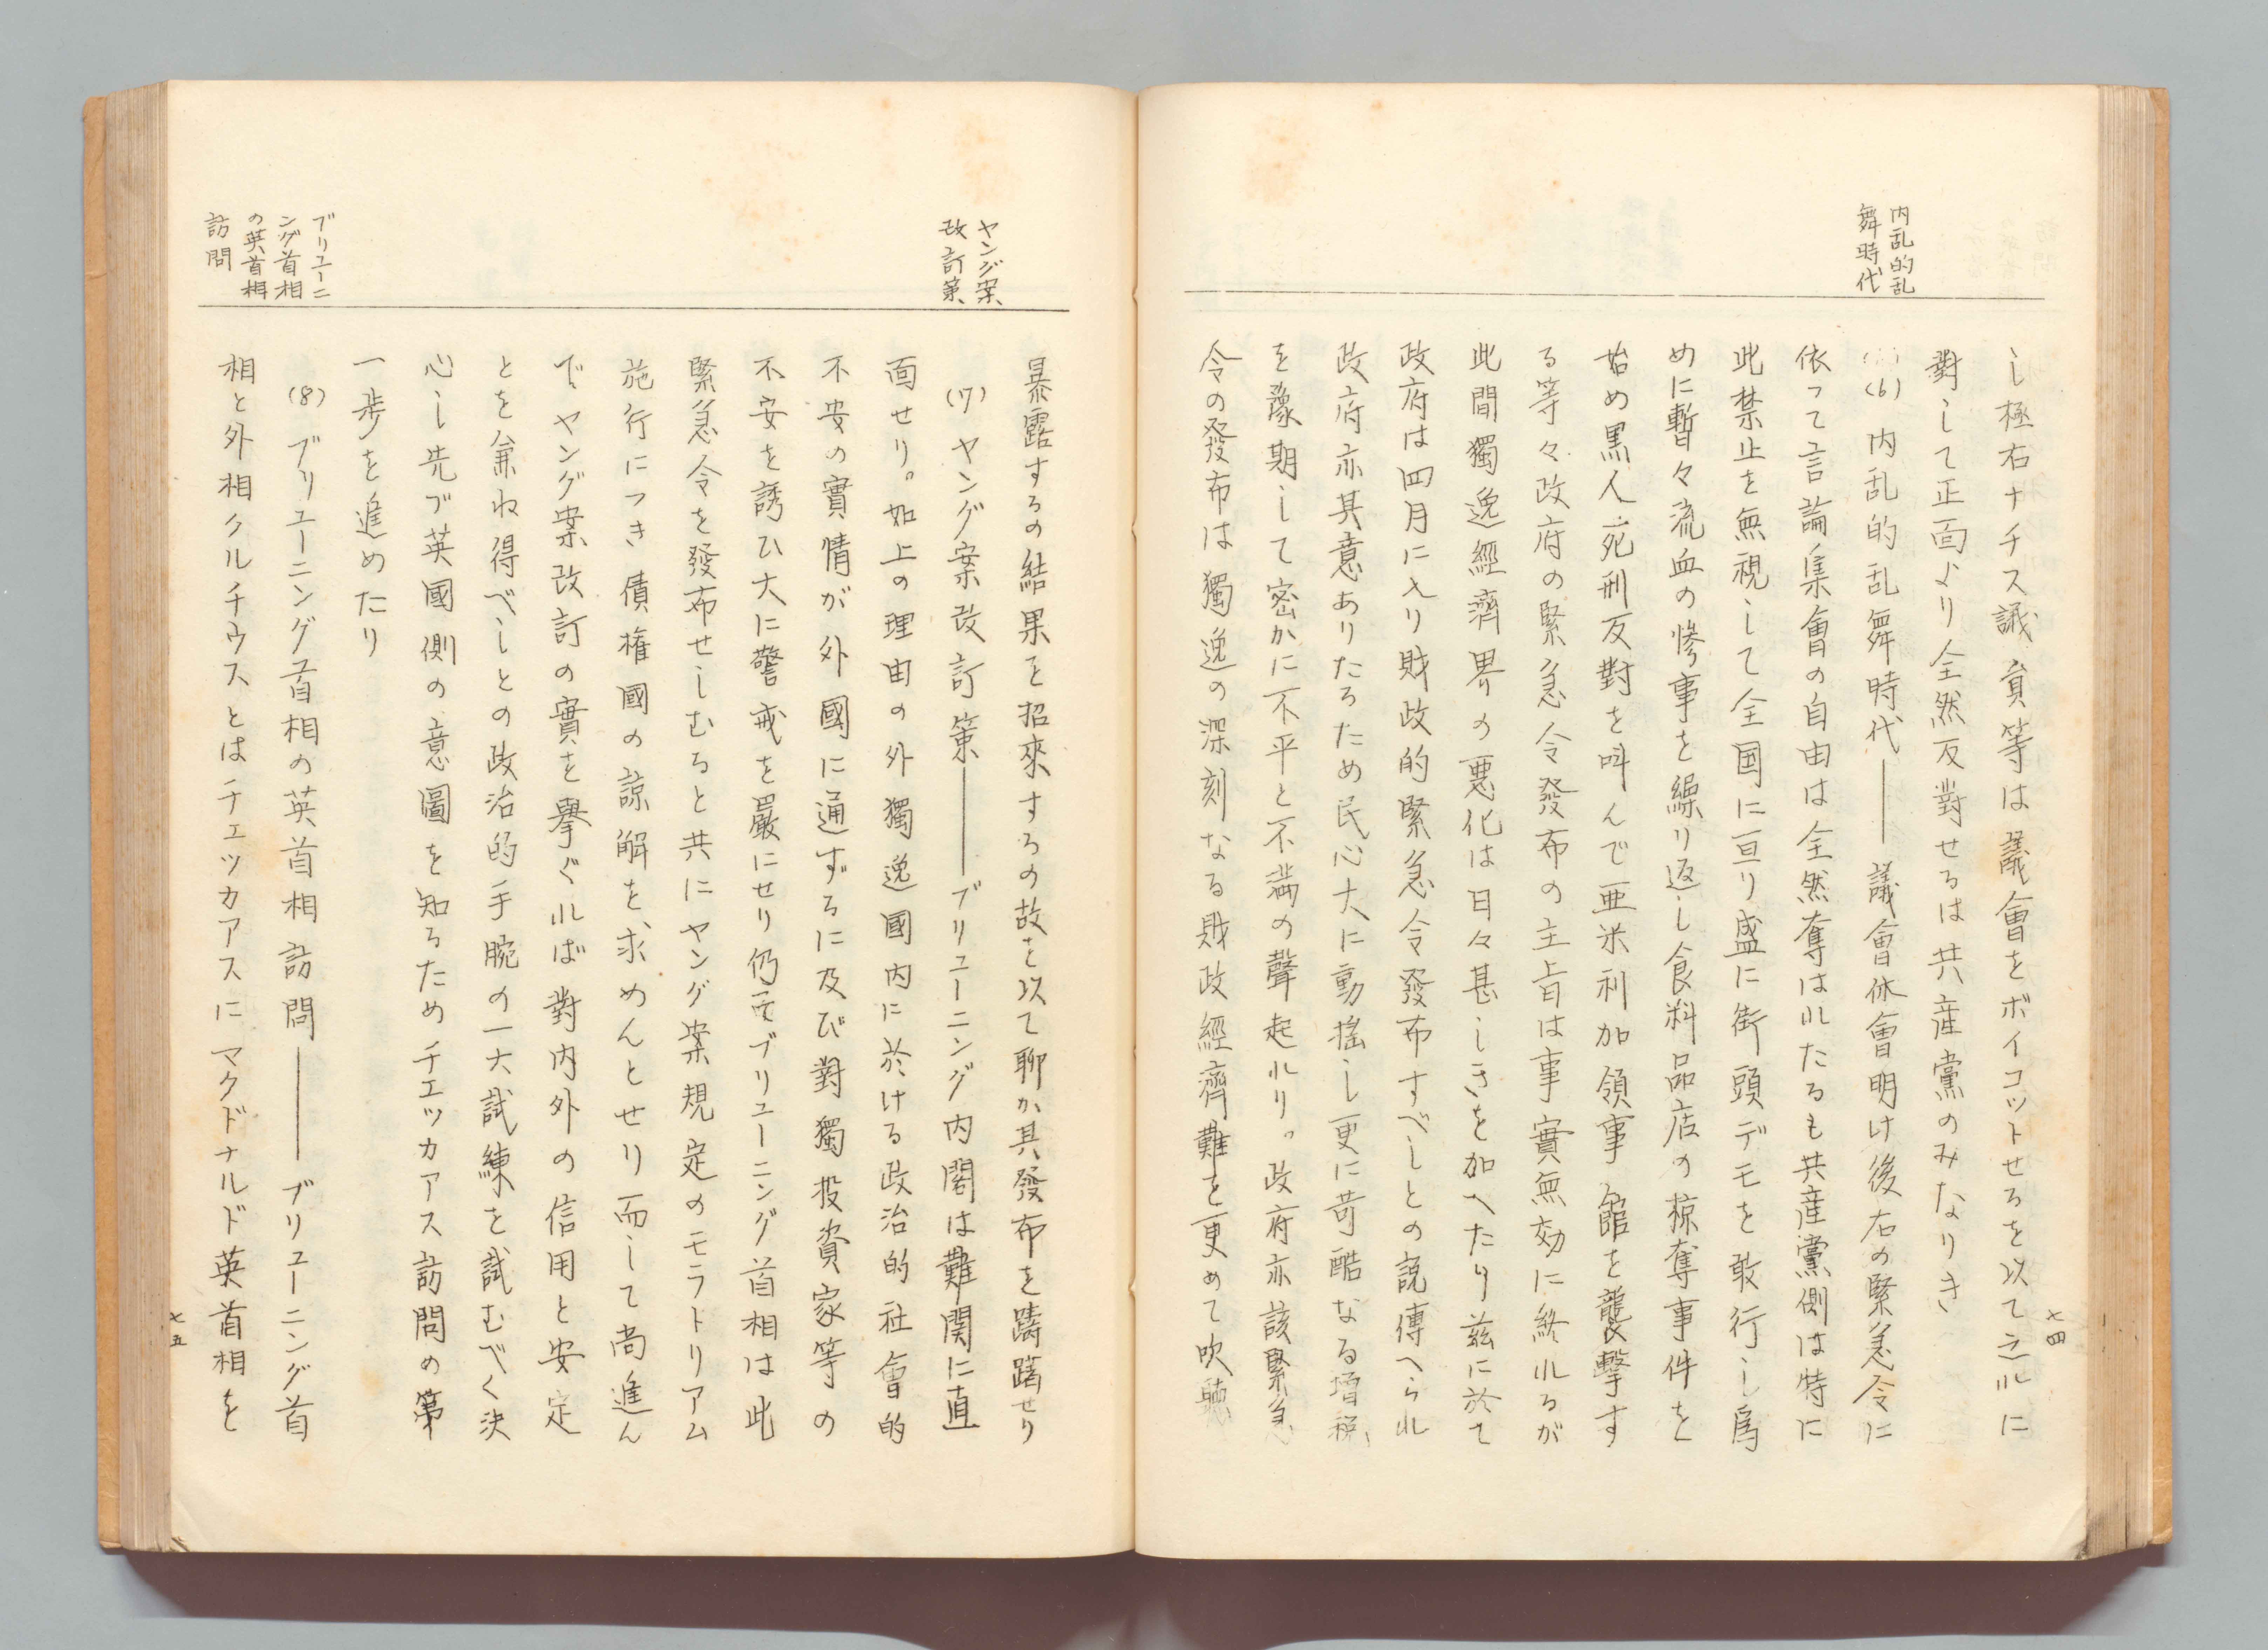 七四
内乱的乱
舞時代
し極右ナチス議員等は議會をボイコットせるを以て之れに
對して正面より全然反對せるは共産黨のみなりき
(6) 内乱的乱舞時代——議會休會明け後右の緊急令に
依って言論集會の自由は全然奪はれたるも共産黨側は特に
此禁止を無視して全国に亘り盛に街頭デモを敢行し爲
めに暫々流血の惨事を繰り返し食料品店の椋奪事件を
始め黒人死刑反對を叫んで亜米利加領事館を襲撃す
る等々政府の緊急令發布の主旨は事實無効に終れるが
此間獨逸經濟界の悪化は日々甚しきを加へたり茲に於て
政府は四月に入り財政的緊急令發布すべしとの説傳へられ
政府亦其意ありたるため民心大に動揺し更に苛酷なる増税
を豫期して密かに不平と不満の聲起れり。政府亦該緊急
令の發布は獨逸の深刻なる財政經濟難を更めて吹聴
ヤング案
改訂策
暴露するの結果を招來するの故を以て聊か其發布を躊躇せり
(7) ヤング案改訂策——ブリューニング内閣は難関に直
面せり。如上の理由の外獨逸國内に於ける政治的社會的
不安の實情が外國に通ずるに及び對獨投資家等の
不安を誘ひ大に警戒を嚴にせり仍而ブリューニング首相は此
緊急令を發布せしむると共にヤング案規定のモラトリアム
施行につき債権國の諒解を、求めんとせり而して尚進ん
でヤング案改訂の實を擧ぐれば對内外の信用と安定
とを兼ね得べしとの政治的手腕の一大試練を試むべく決
心し先づ英國側の意圖を知るためチエッカアス訪問の第
一歩を進めたり
ブリューニ
ング首相
の英首相
訪問
(8) ブリューニング首相の英首相訪問——ブリューニング首
相と外相クルチウスとはチェッカアスにマクドナルド英首相を
七五